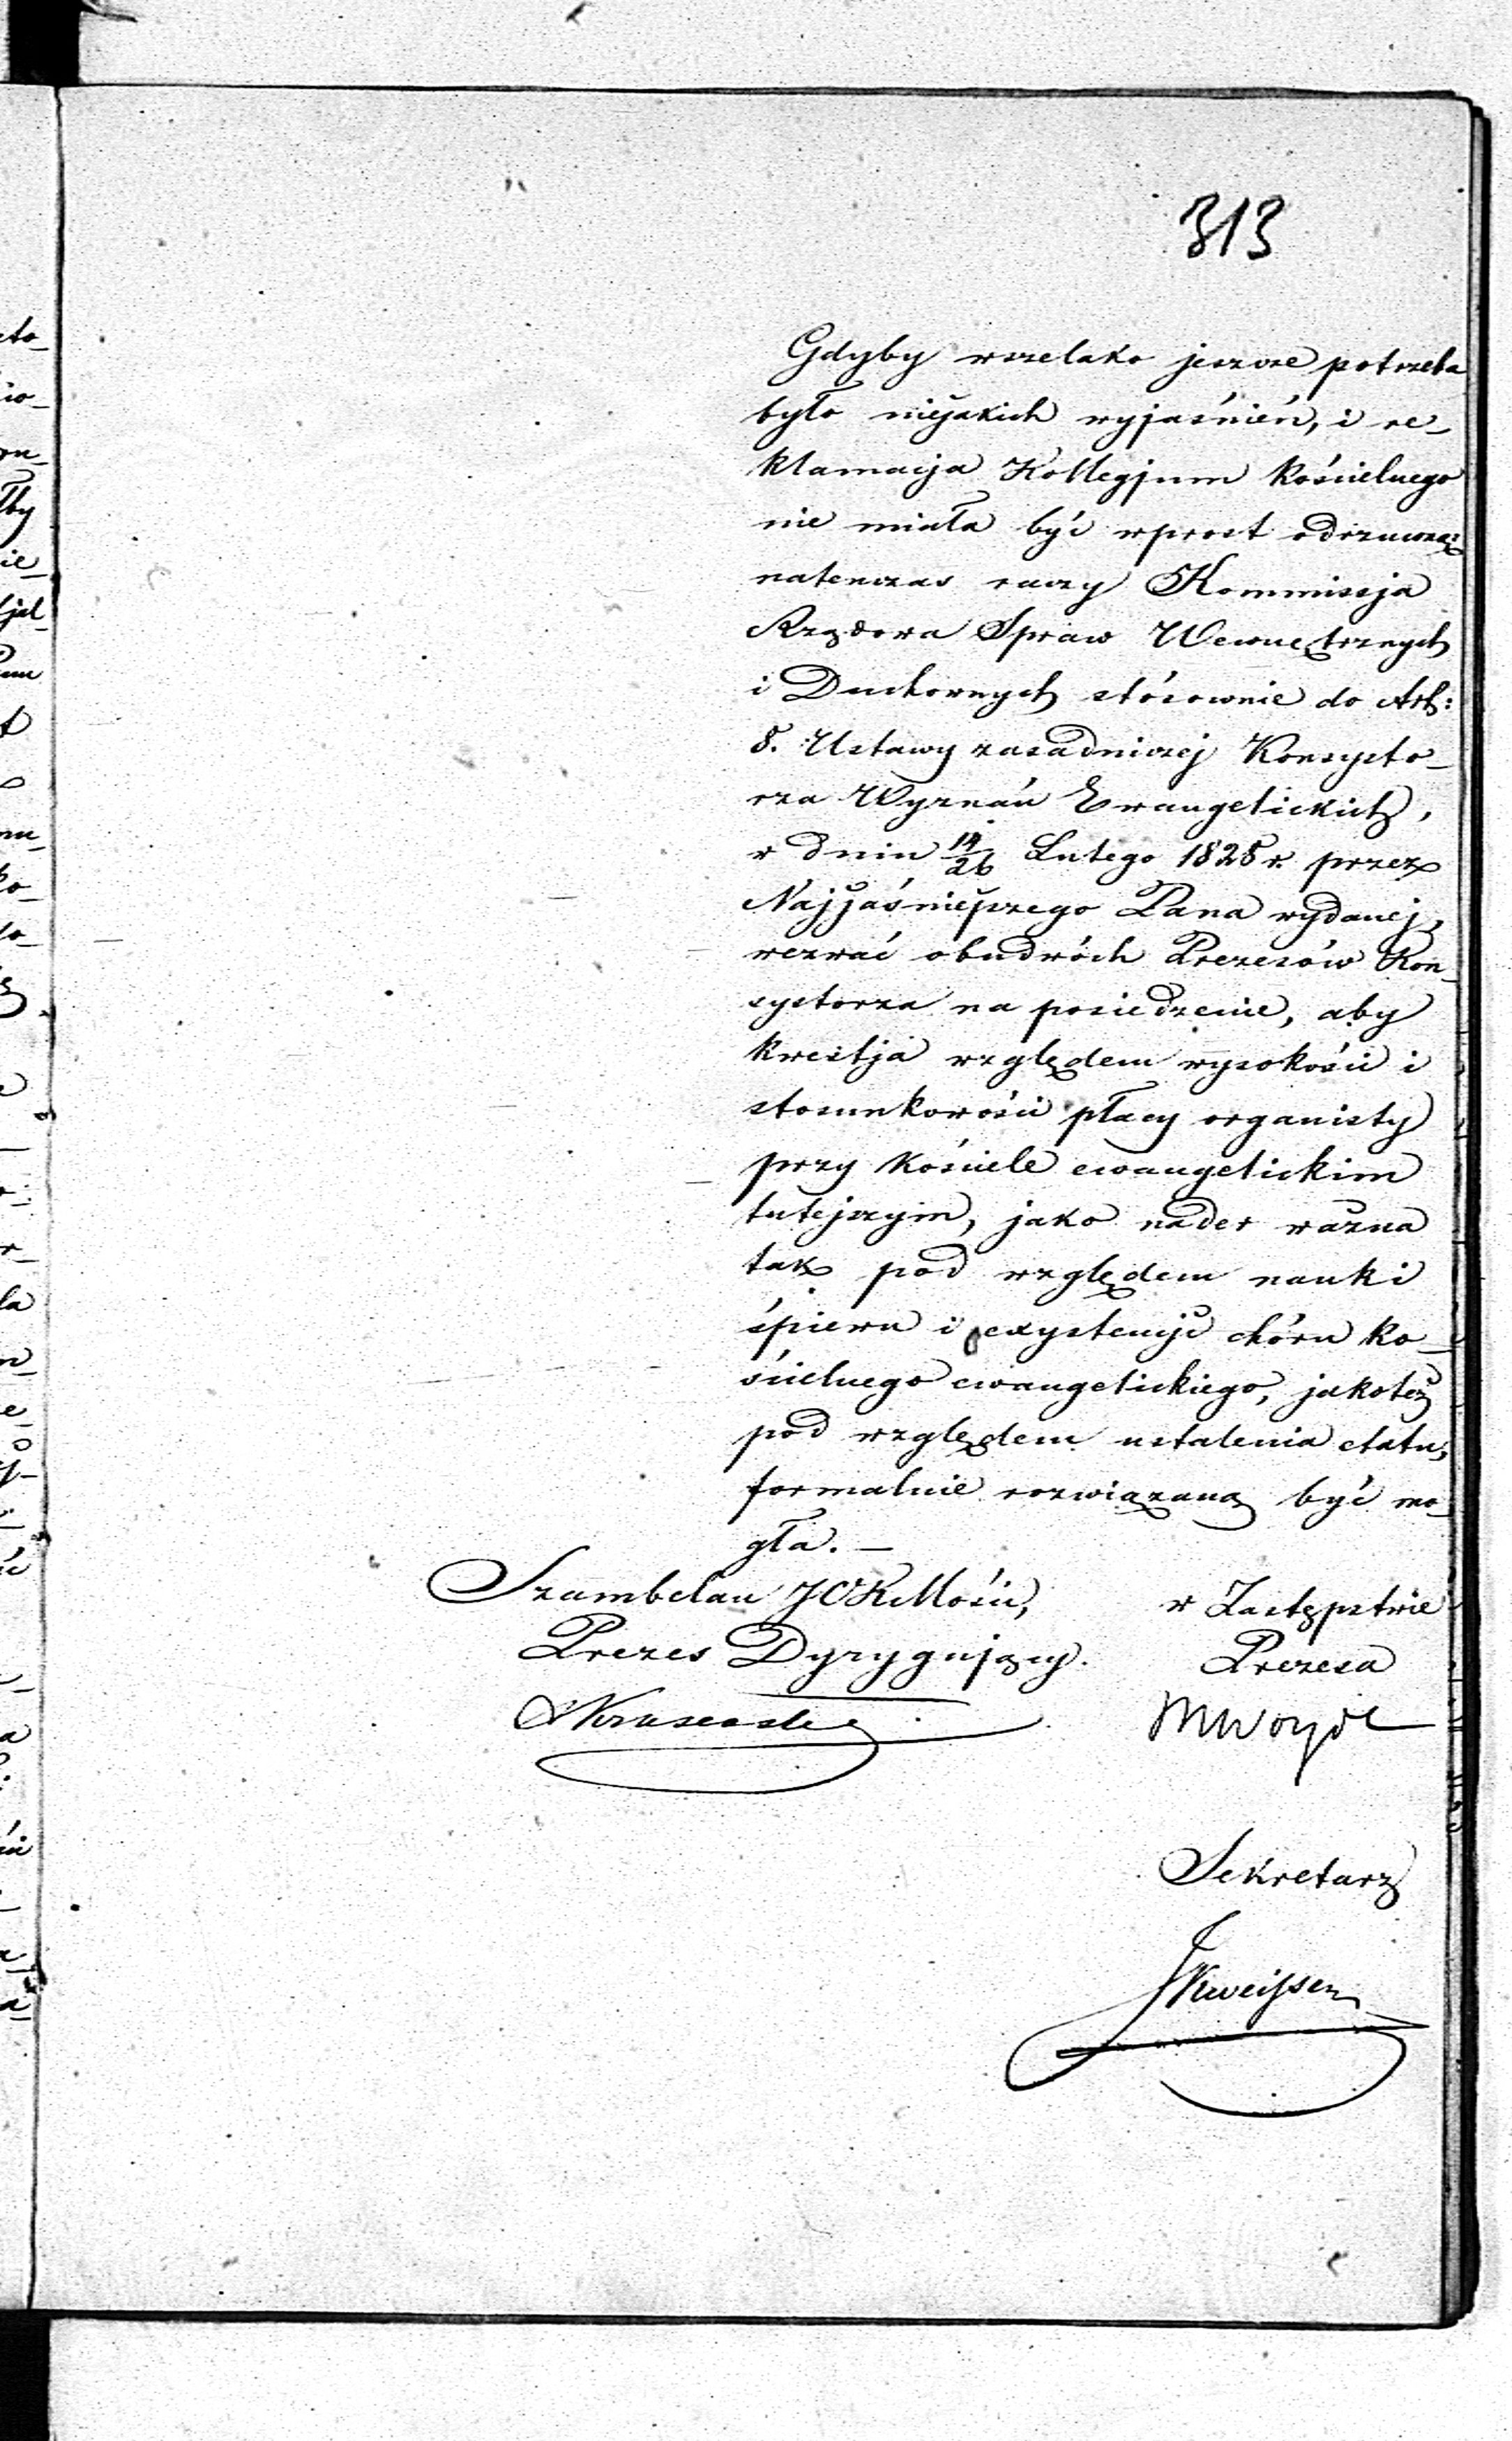 313
Gdyby wszelako jeszcze potrzeba
było niejakich wyjaśnień, i re_
klamacija Kollegjum kościelnego
nie miała być wprost odrzuconą:
natenczas raczy Kommissja
Rządowa Spraw Wewnętrznych
i Duchownych stósownie do Art:
8. Ustawy zasadniczej Konsysto_
rza Wyznań Ewangelickich,
w dniu 14/26 Lutego 1828 r. przez
Najjaśniejszego Pana wydanej,
wezwać obudwóch Prezesów Kon_
systorza na posiedzenie, aby
kwestja względem wysokości i
stosunkowości płacy organisty
przy kościele ewangelickim
tutejszym, jako nader ważna
tak pod względem nauki
śpiewu i exystencji chóru ko_
ścielnego ewangelickiego, jakoteż
pod względem ustalenia etatu,
formalnie rozwiązaną być mo_
gła. —
Szambelan JCKMości, w Zastępstwie
Prezes Dyrygujący. Prezesa
Sekretarz